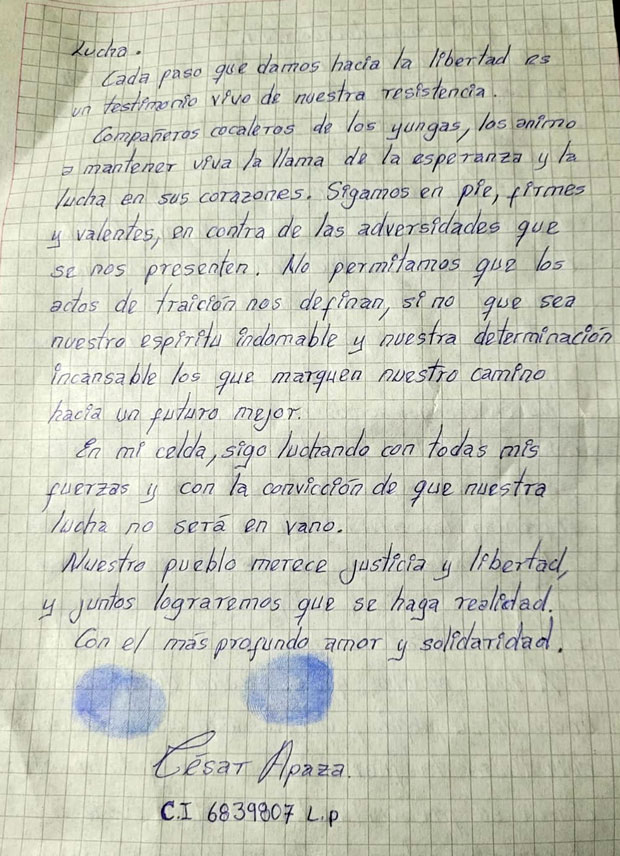 Lucha.
Cada paso que damos hacia la libertad es
un testimonio vivo de nuestra resistencia.
Compañeros cocaleros de los yungas, los animo
a mantener viva la llama de la esperanza y la
lucha en sus corazones. Sigamos en pie, firmes
y valentes, en contra de las adversidades que
se nos presenten. No permitamos que los
actos de traición nos definan, si no que sea
nuestro espíritu indomable y nuestra determinación
incansable los que marquen nuestro camino
hacia un futuro mejor.
En mi celda, sigo luchando con todas mis
fuerzas y con la convicción de que nuestra
lucha no será en vano.
Nuestro pueblo merece justicia y libertad,
y juntos lograremos que se haga realidad.
Con el más profundo amor y solidaridad.
César Apaza.
C.I 6839807 L.p